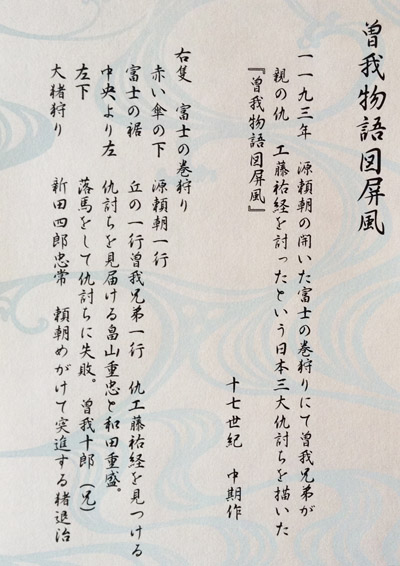 曽我物語図屏風
一一九三年　源頼朝の開いた富士の巻狩りにて曽我兄弟が
親の仇　工藤祐経を討ったという日本三大仇討ちを描いた
『曽我物語図屏風』
十七世紀　中期作
右隻　富士の巻狩り
赤い傘の下　源頼朝一行
富士の裾　丘の一行曽我兄弟一行　仇工藤祐経を見つける
中央より左　仇討ちを見届ける畠山重忠と和田重盛。
左下　落馬をして仇討ちに失敗。曽我十郎（兄）
大猪狩り　新田四郎忠常　頼朝めがけて突進する猪退治